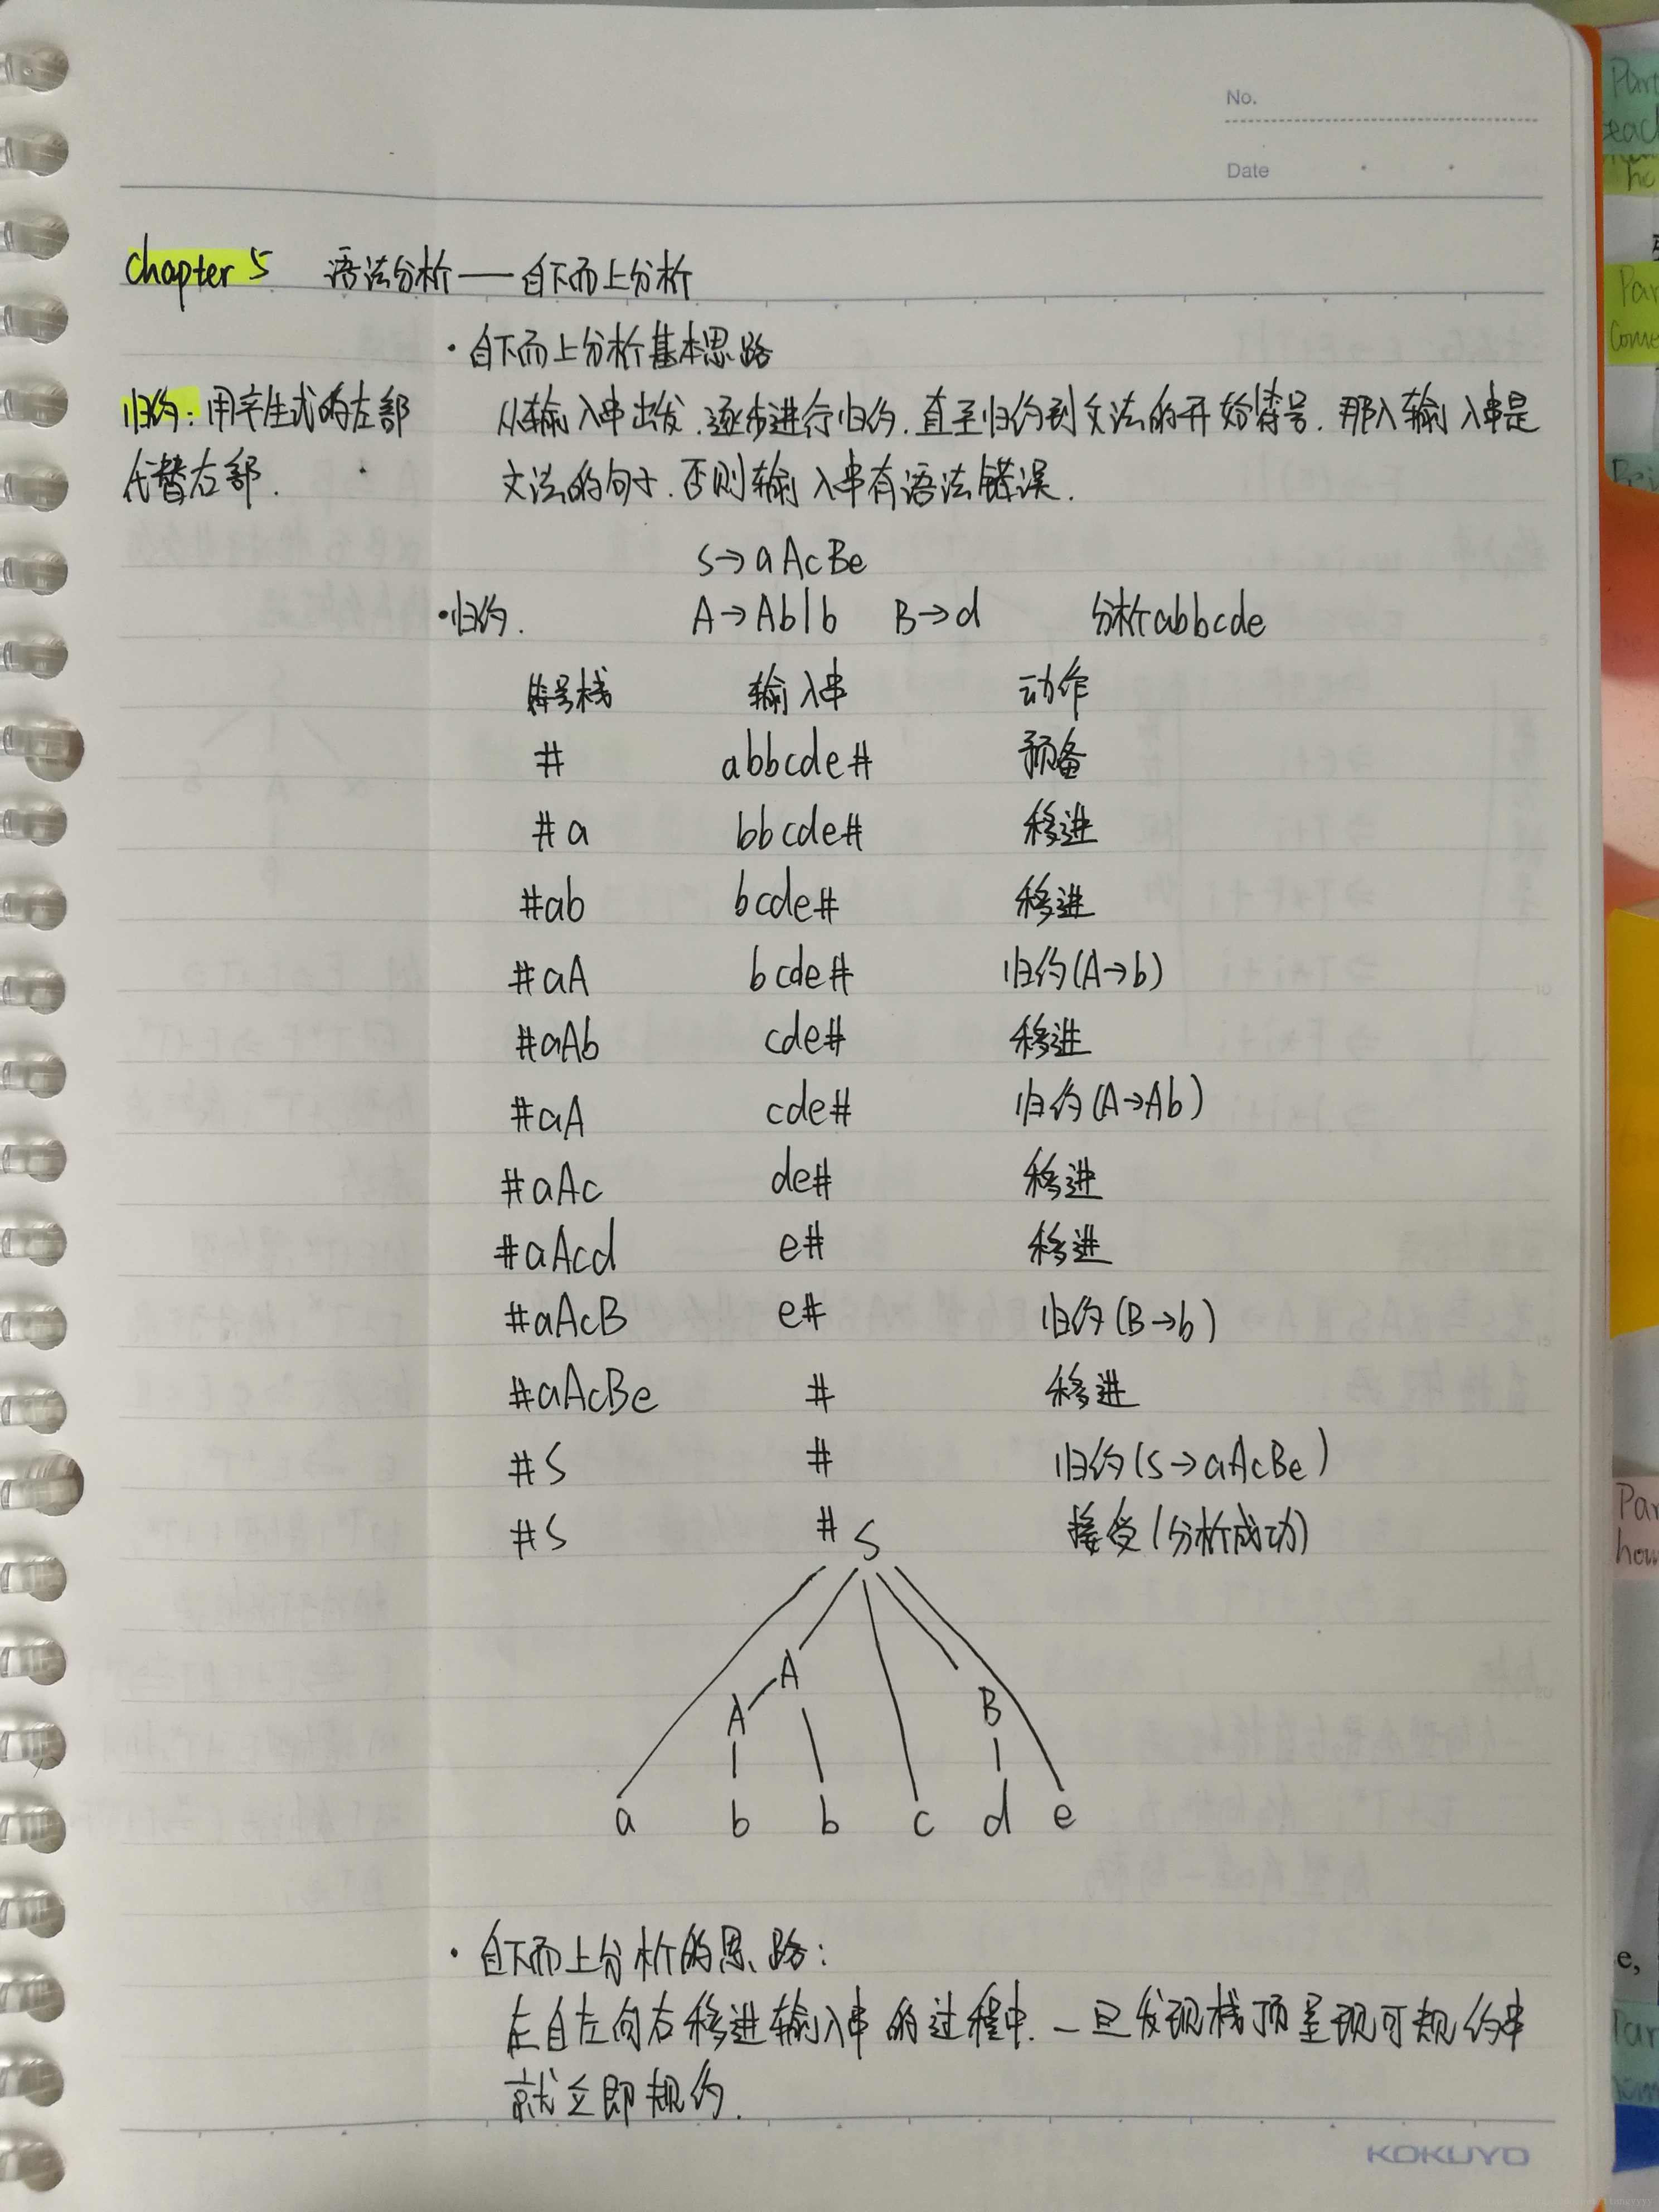 No.
Date
Chapter 5 语法分析——自下而上分析
·自下而上分析基本思路
归约:用产生式的左部
代替右部.
从输入串出发.逐步进行归约.直至归约到文法的开始符号.那入输入串是
文法的句子.否则输入串有语法错误.
S→aAcBe
·归约. A→Ab|b B→d 分析abbcde
符号栈 输入串 动作
# abbcde# 预备
#a bbcde# 移进
#ab bcde# 移进
#aA bcde# 归约(A→b)
#aAb cde# 移进
#aA cde# 归约(A→Ab)
#aAc de# 移进
#aAcd e# 移进
#aAcB e# 归约(B→b)
#aAcBe # 移进
#S # 归约(S→aAcBe)
#S # 接受(分析成功)
S
A
A B
a b b c d e
·自下而上分析的思路:
在自左向右移进输入串的过程中.一旦发现栈顶呈现可规约串
就立即规约.
KOKUYO